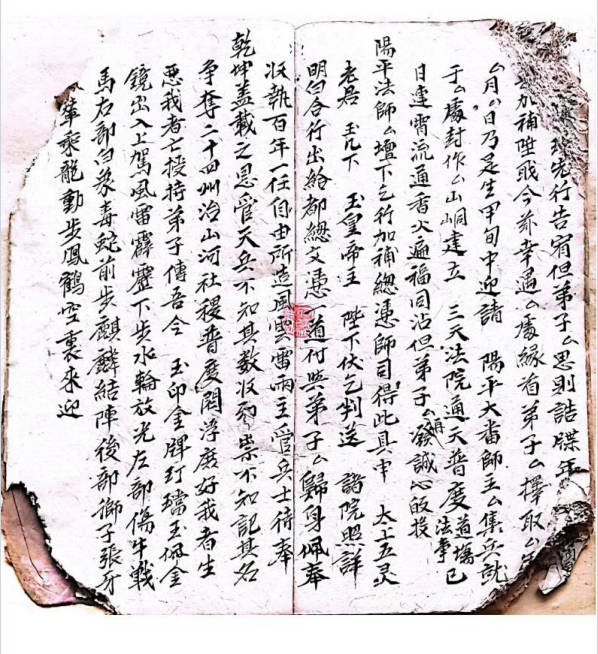 先行告宥但弟子厶思則誥牒年
加補陞戝今茲幸遇厶處緣首弟子厶擇取厶年
厶月厶日乃是生甲旬中迎請 陽平大當師主厶集兵就
于厶處封作厶山峒建立 三天法院通天普度道塲法事已
日連宵流通香火遍福同沾但弟子厶再發誠心皈投
陽平法師厶壇下乞行加補總憑師司得此具申 太上五灵
老君 玉几下 玉皇帝主 陛下伏乞判送 諸院照詳
明白合行出給都總文憑一道付與弟子厶歸身佩奉
收執百年一任自由所造風雲雷雨主管兵士待奉
乾坤盖載之恩管天兵不知其数收邪祟不知記其名
争奪二十四州治山河社稷普度閻浮廣好我者生
惡我者亡授持弟子傳吾令 玉印金牌玎璫玉佩金
鏡出入上駕風雷霹靂下步水輪放光左部傷牛戰
馬右部白象毒蛇前步麒麟結陣後部獅子張牙
輦乘龍動步鳳鶴空裏來迎